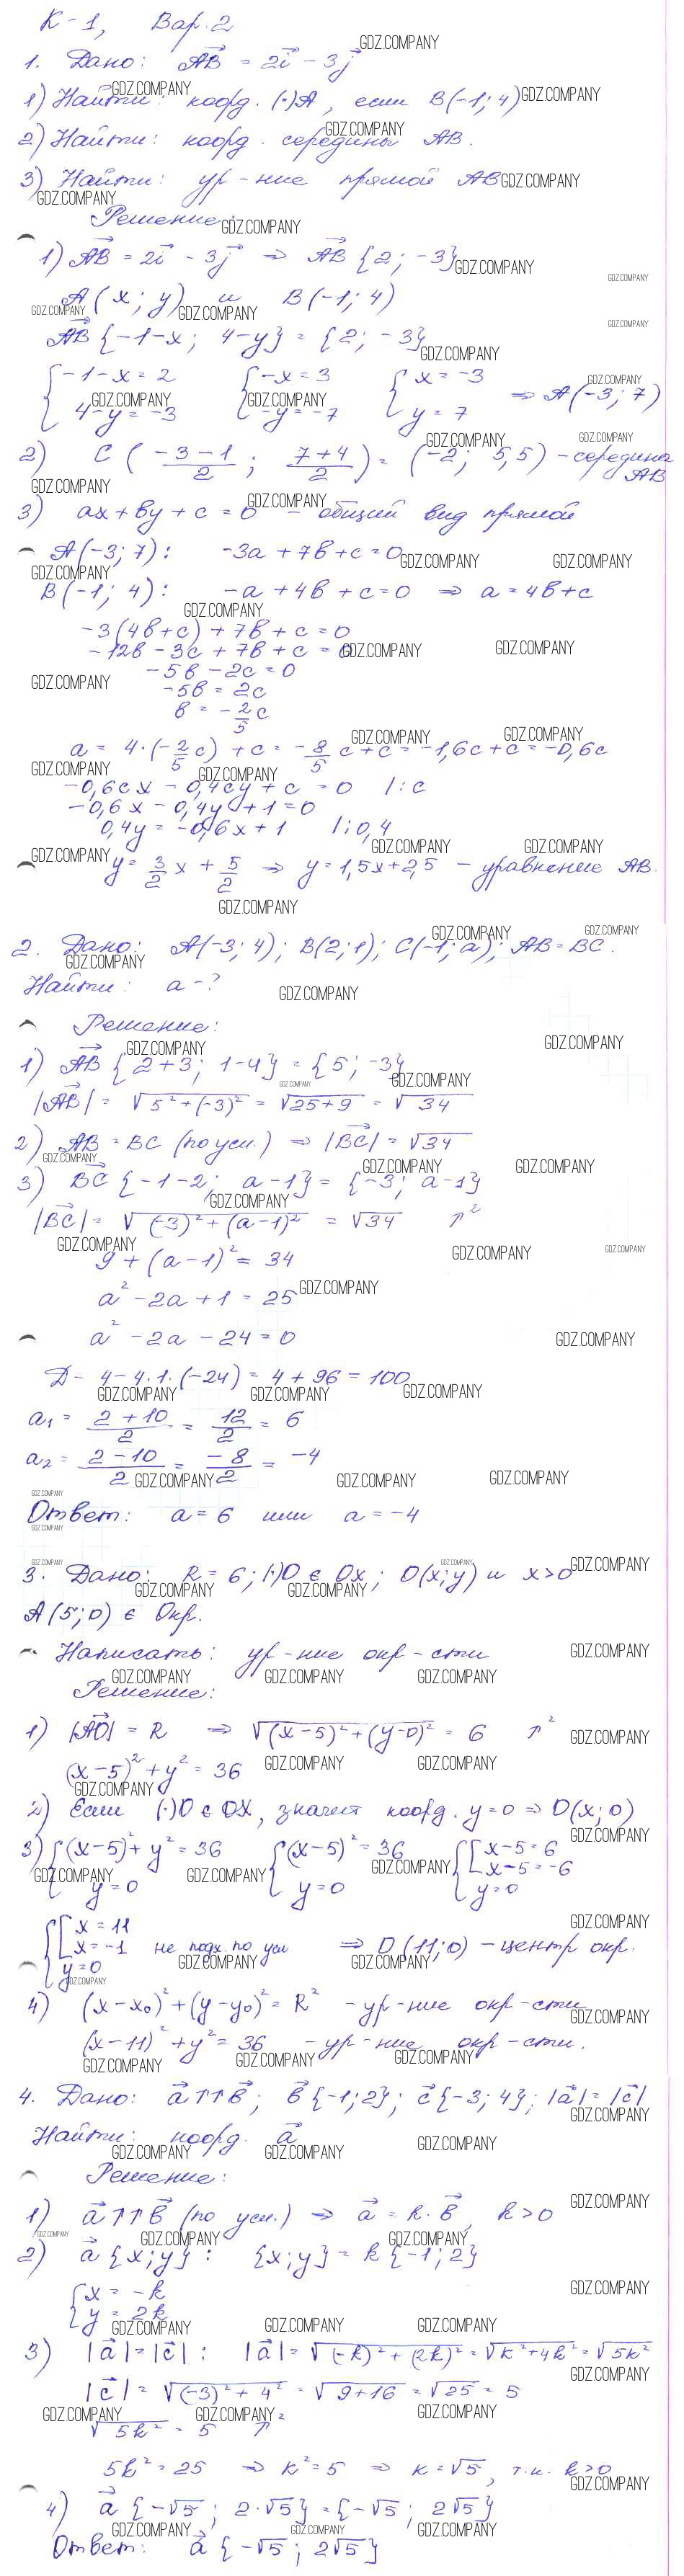 К-1, Вар. 2
1. Дано: AB = 2i - 3j
1) Найти: коорд. (·)A, если B(-1; 4)
2) Найти: коорд. середины AB.
3) Найти: ур-ние прямой AB
Решение:
1) AB = 2i - 3j ⇒ AB {2; -3}
A(x; y) и B(-1; 4)
AB {-1-x; 4-y} = {2; -3}
{-1-x=2 {-x=3 {x=-3
4-y=-3 -y=-7 y=7 ⇒ A(-3; 7)
2) C((-3-1)/2; (7+4)/2) = (-2; 5,5) - середина AB
3) ax+by+c=0 - общий вид прямой
A(-3; 7): -3a+7b+c=0
B(-1; 4): -a+4b+c=0 ⇒ a=4b+c
-3(4b+c)+7b+c=0
-12b-3c+7b+c=0
-5b-2c=0
-5b=2c
b=-2/5c
a=4·(-2/5c)+c=-8/5c+c=-1,6c+c=-0,6c
-0,6cx-0,4cy+c=0 |:c
-0,6x-0,4y+1=0
0,4y=-0,6x+1 |:0,4
y=3/2x+5/2 ⇒ y=1,5x+2,5 - уравнение AB.
2. Дано: A(-3; 4); B(2; 1); C(-1; a); AB=BC.
Найти: a-?
Решение:
1) AB {2+3; 1-4} = {5; -3}
|AB| = √(5²+(-3)²) = √(25+9) = √34
2) AB=BC (по усл.) ⇒ |BC|=√34
3) BC {-1-2; a-1} = {-3; a-1}
|BC| = √((-3)²+(a-1)²) = √34 ↑²
9+(a-1)²=34
a²-2a+1=25
a²-2a-24=0
D-4-4·1·(-24)=4+96=100
a₁=(2+10)/2=12/2=6
a₂=(2-10)/2=-8/2=-4
Ответ: a=6 или a=-4
3. Дано: R=6; (·)O ∈ Ox; O(x; y) и x>0
A(5; 0) ∈ Окр.
Написать: ур-ние окр-сти
Решение:
1) |AO|=R ⇒ √((x-5)²+(y-0)²)=6 ↑²
(x-5)²+y²=36
2) Если (·)O ∈ OX, значит коорд. y=0 ⇒ O(x; 0)
3) {(x-5)²+y²=36 {(x-5)²=36 {[x-5=6
y=0 y=0 x-5=-6
y=0
{[x=11
x=-1 не подх. по усл ⇒ O(11; 0) - центр окр.
y=0
4) (x-x₀)²+(y-y₀)²=R² - ур-ние окр-сти
(x-11)²+y²=36 - ур-ние окр-сти.
4. Дано: a↑↑b; b{-1; 2}; c{-3; 4}; |a|=|c|
Найти: коорд. a
Решение:
1) a↑↑b (по усл.) ⇒ a=k·b, k>0
2) a{x; y}: {x; y}=k{-1; 2}
{x=-k
y=2k
3) |a|=|c|: |a|=√((-k)²+(2k)²)=√(k²+4k²)=√(5k²)
|c|=√((-3)²+4²)=√(9+16)=√25=5
√(5k²)=5 ↑²
5k²=25 ⇒ k²=5 ⇒ k=√5, т.к. k>0
4) a{-√5; 2·√5}={-√5; 2√5}
Ответ: a{-√5; 2√5}
GDZ.COMPANY